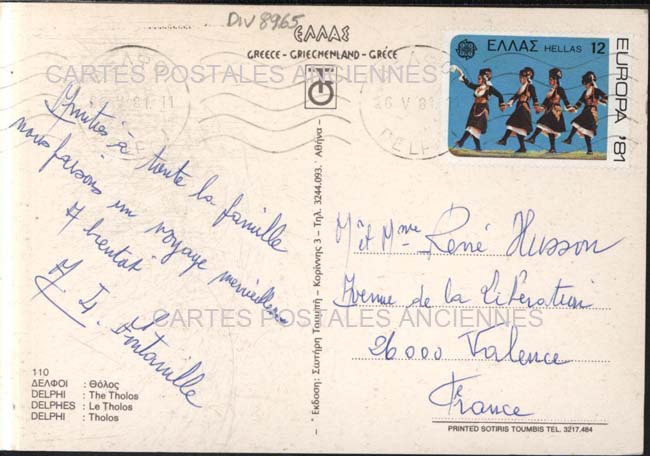 DIV 8965
ΕΛΛΑΣ
GREECE - GRIECHENLAND - GRÈCE
CARTES POSTALES ANCIENNES
26 V 81. 11
DELF
26 V 81.
DELF
ΕΛΛΑΣ HELLAS 12
EUROPA '81
Amitiés à toute la famille
nous faisons un voyage merveilleux
A bientôt
Fontanille
Mr et Mme René Husson
Avenue de la Libération
CARTES POSTALES ANCIENNES
26000 Valence
France
110
ΔΕΛΦΟΙ : Θόλος
DELPHI : The Tholos
DELPHES : Le Tholos
DELPHI : Tholos
Έκδοση: Σωτήρη Τουμπή - Κορίννης 3 - Τηλ. 3244.093. Αθήνα -
PRINTED SOTIRIS TOUMBIS TEL. 3217.484